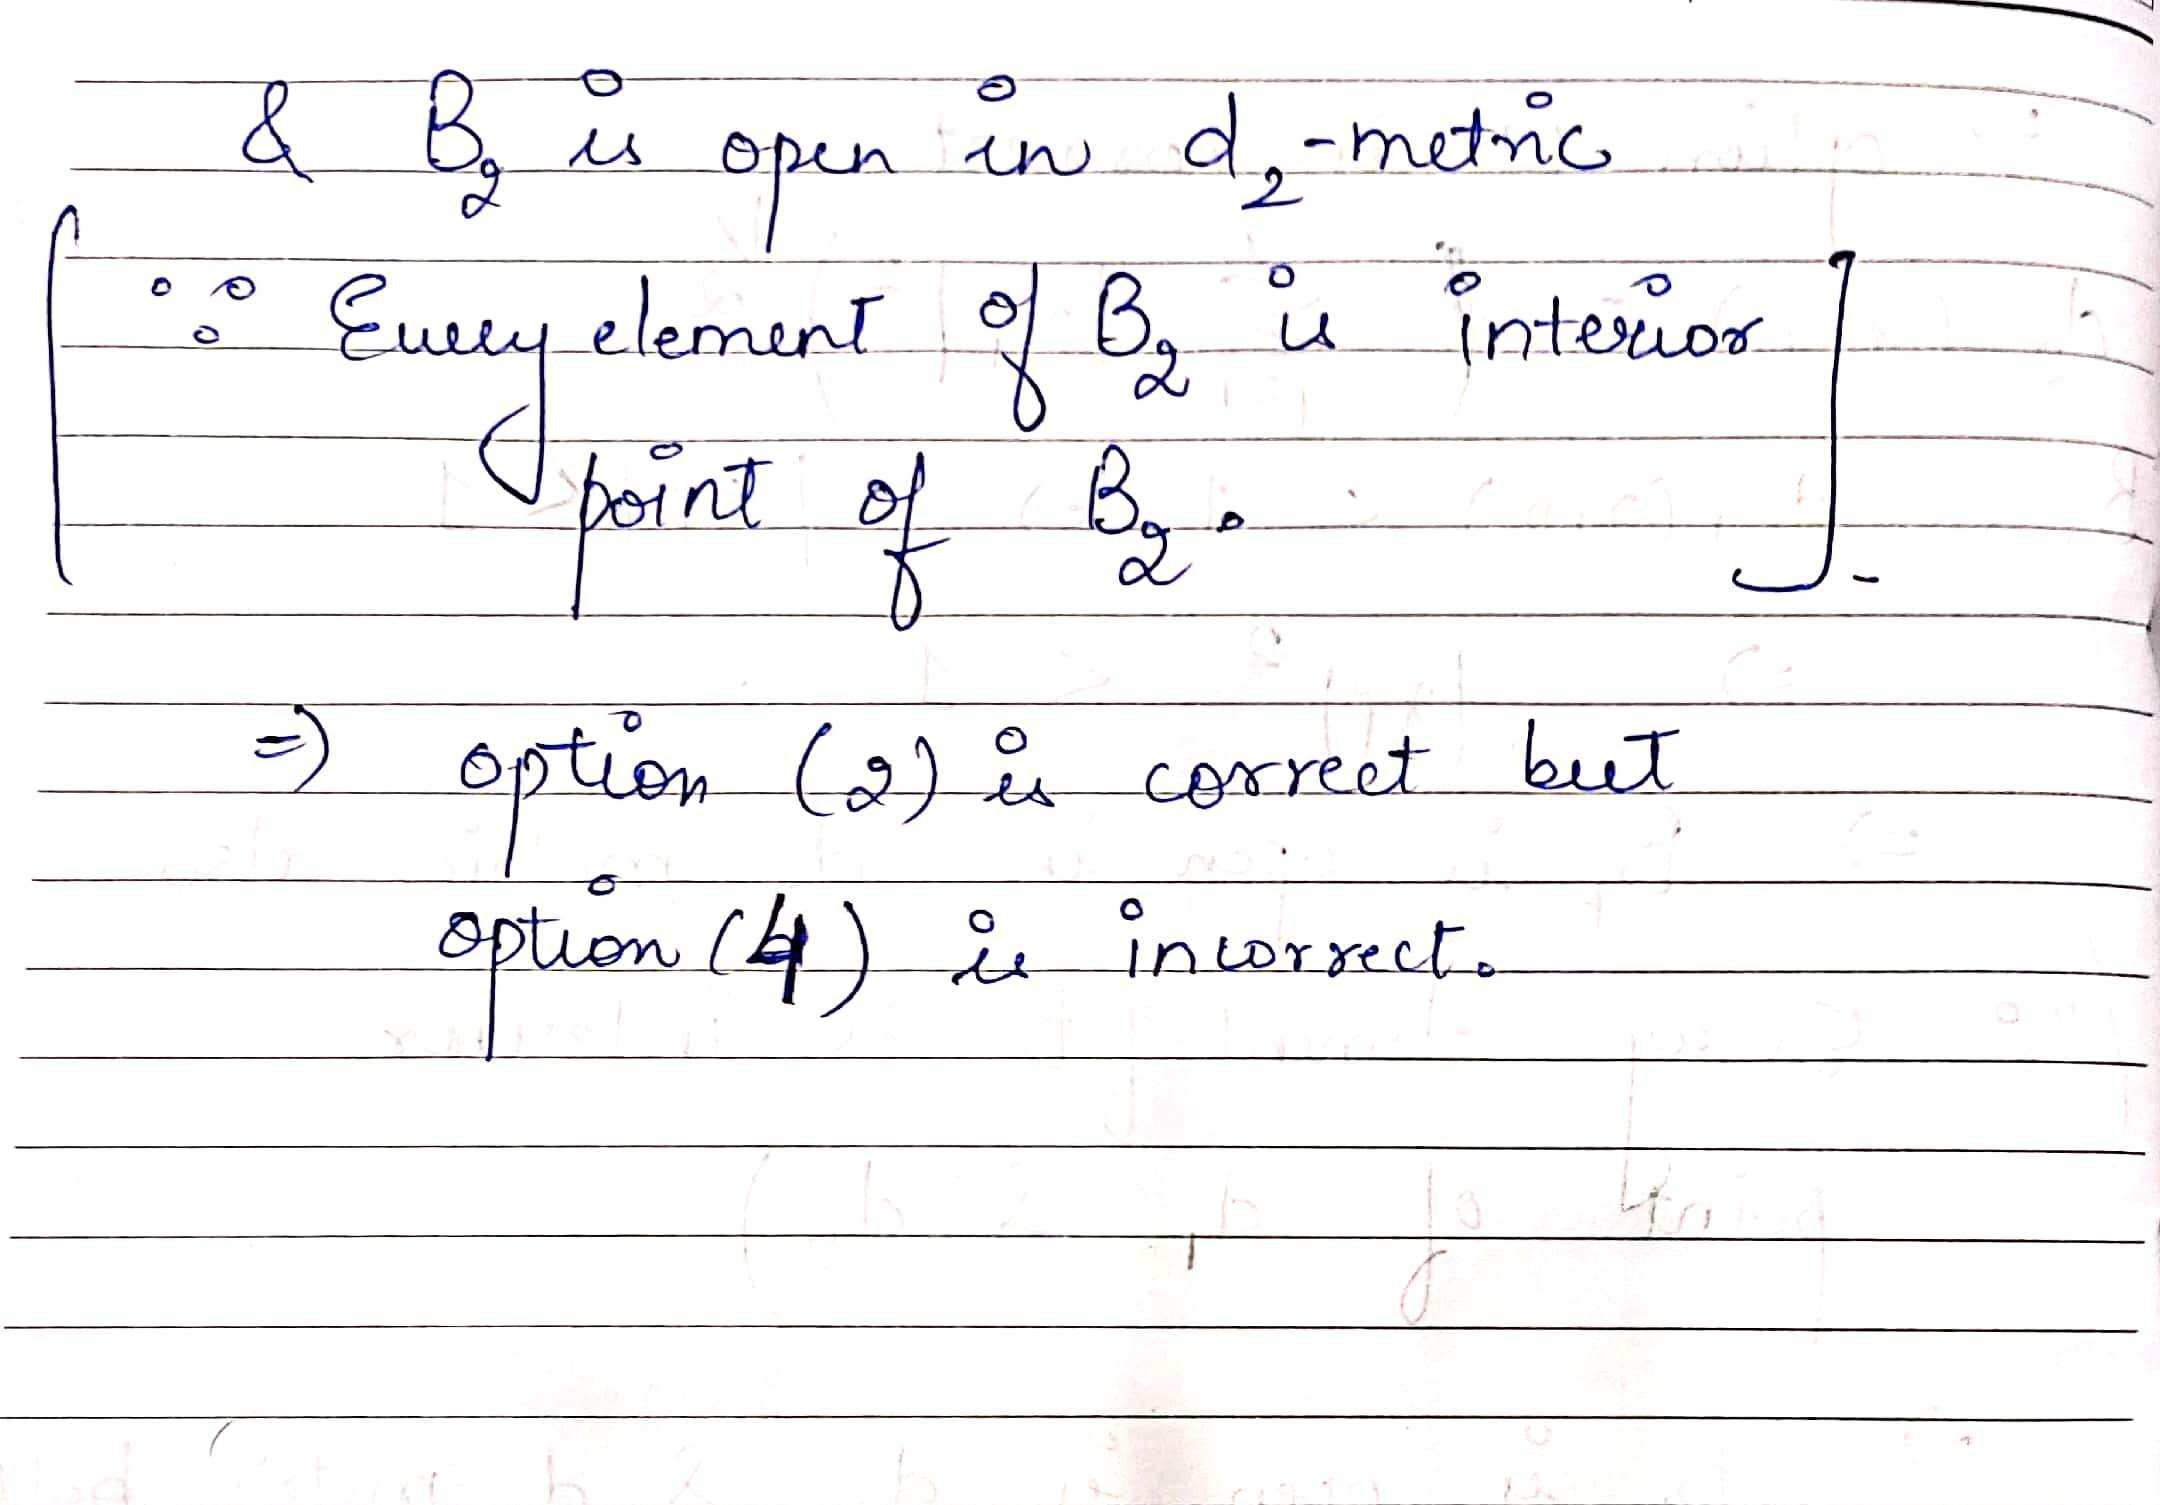 & B₂ is open in d₂-metric
[∵ Every element of B₂ is interior
point of B₂.]-
⇒ option (2) is correct but
option (4) is incorrect.